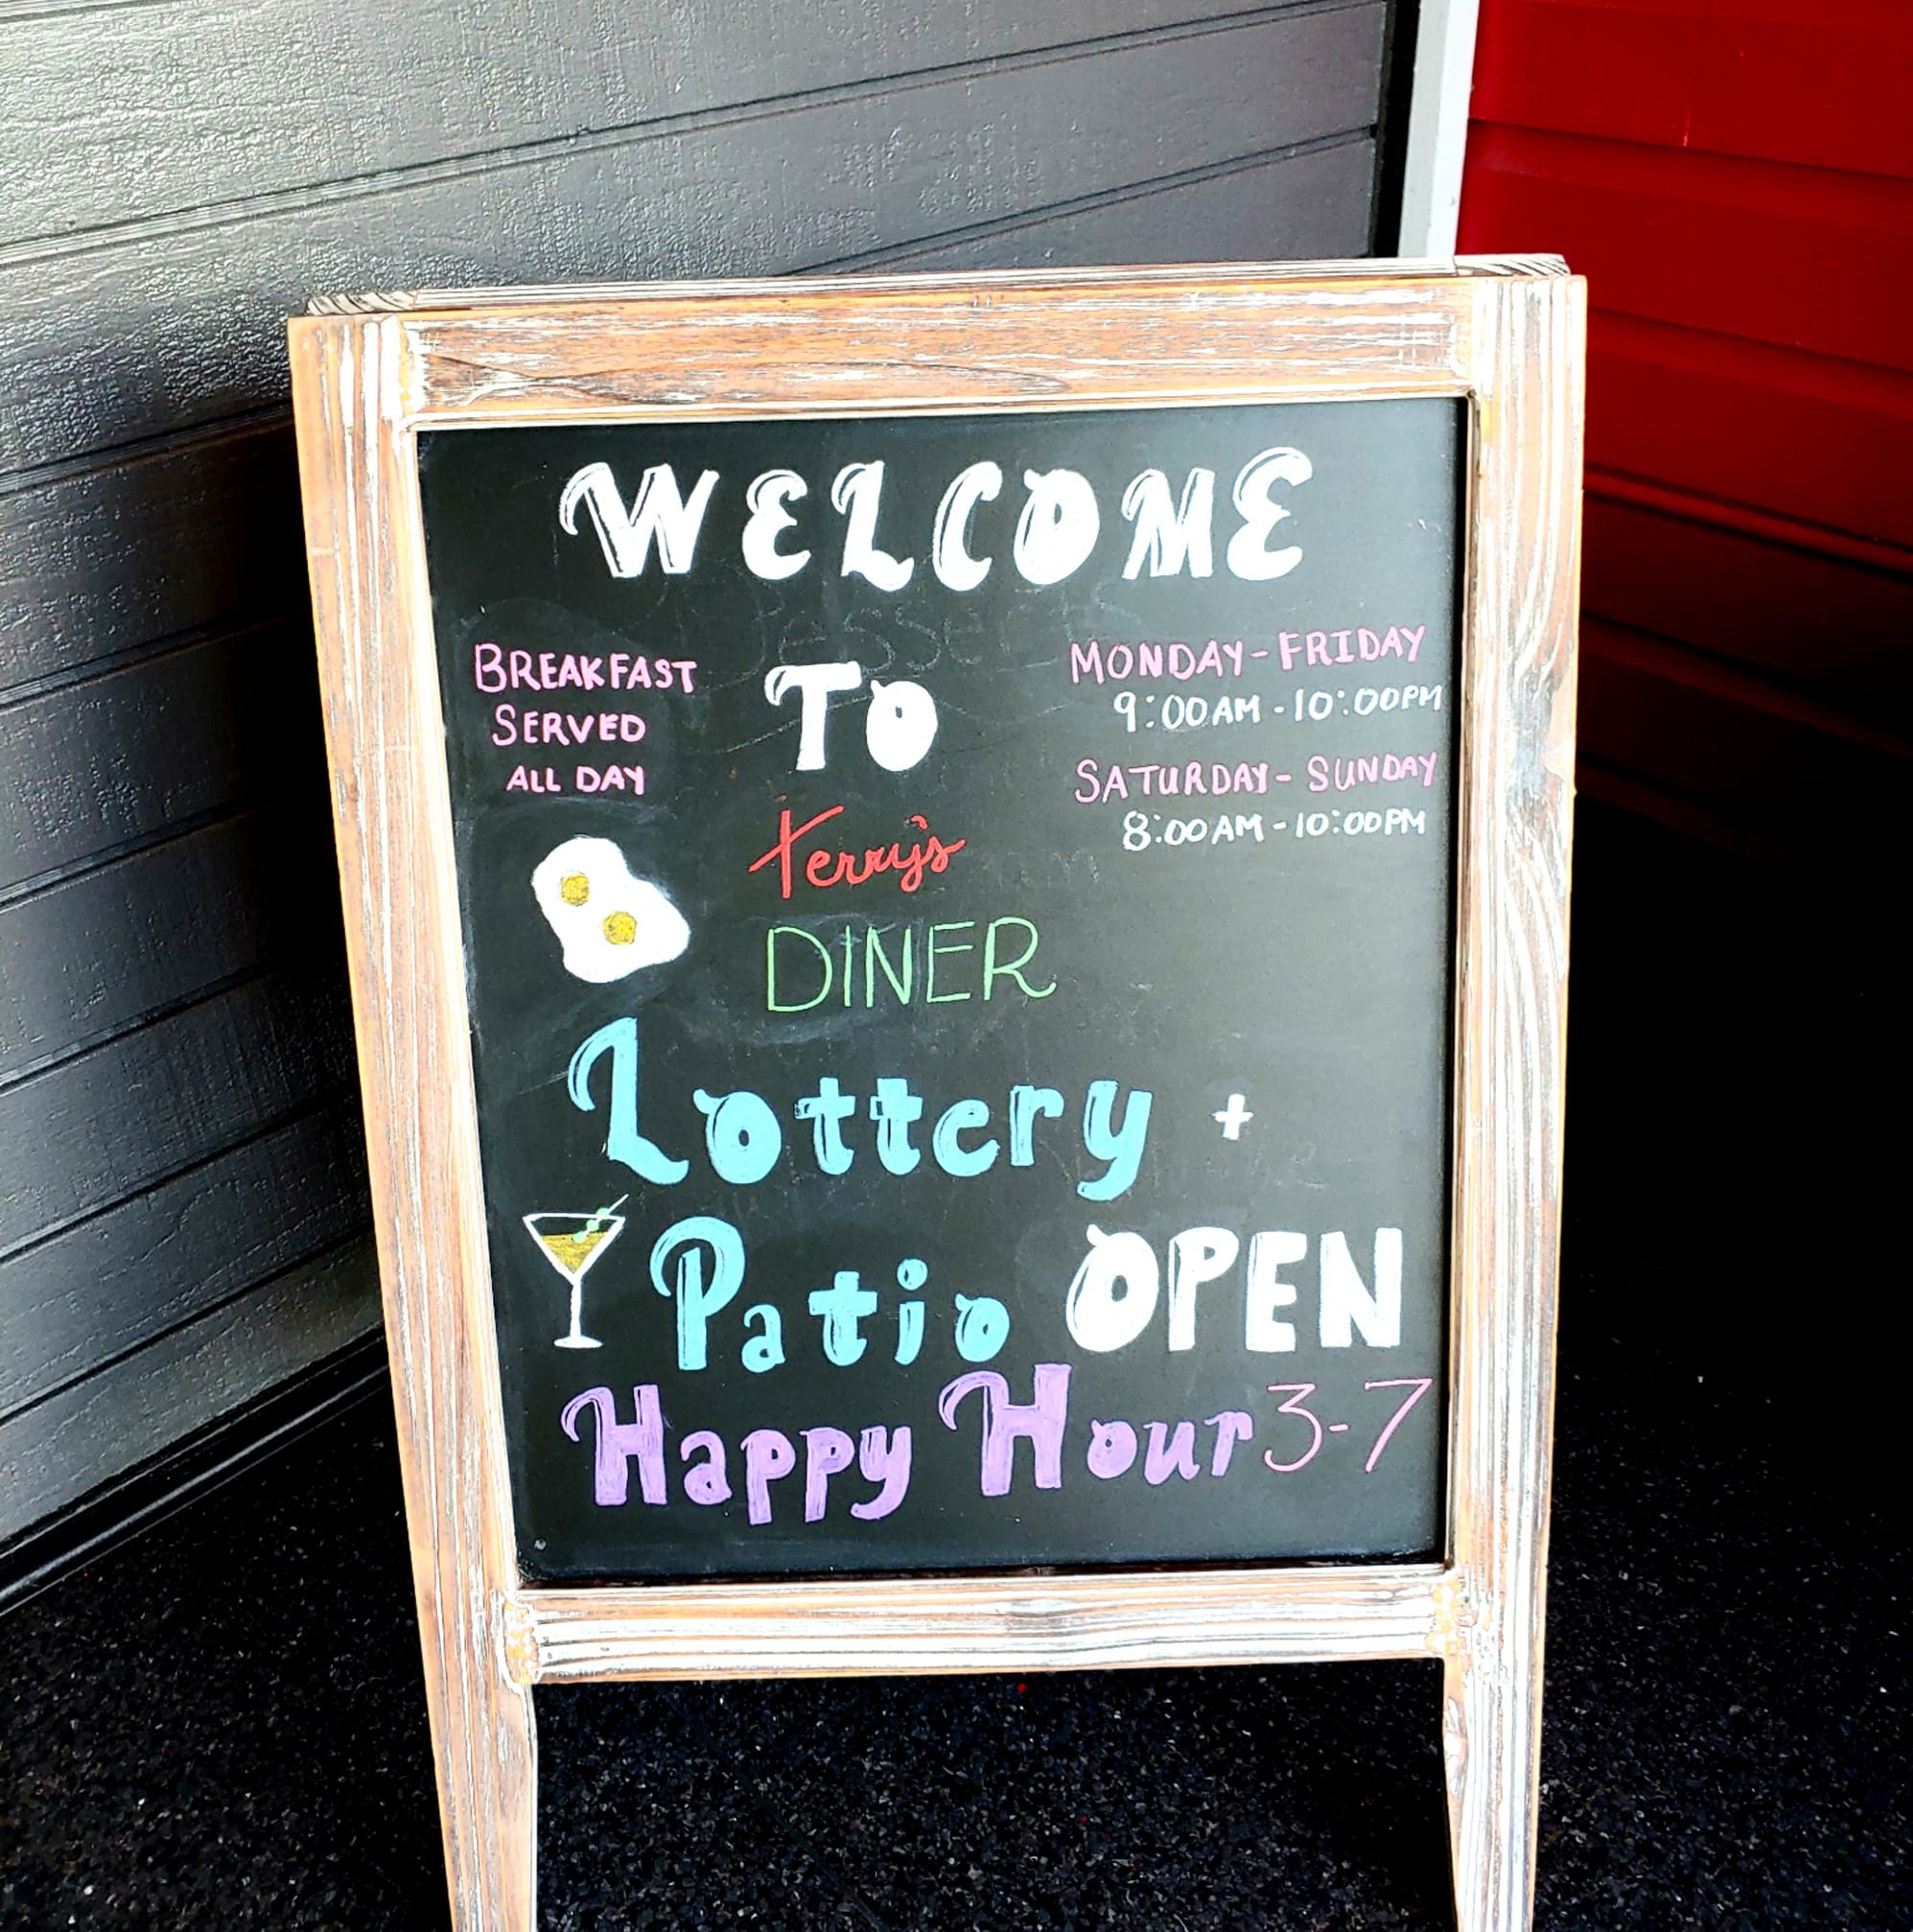 WELCOME
BREAKFAST
SERVED
ALL DAY
TO
Terry's
DINER
MONDAY-FRIDAY
9:00AM-10:00PM
SATURDAY-SUNDAY
8:00AM-10:00PM
Lottery +
Patio OPEN
Happy Hour 3-7